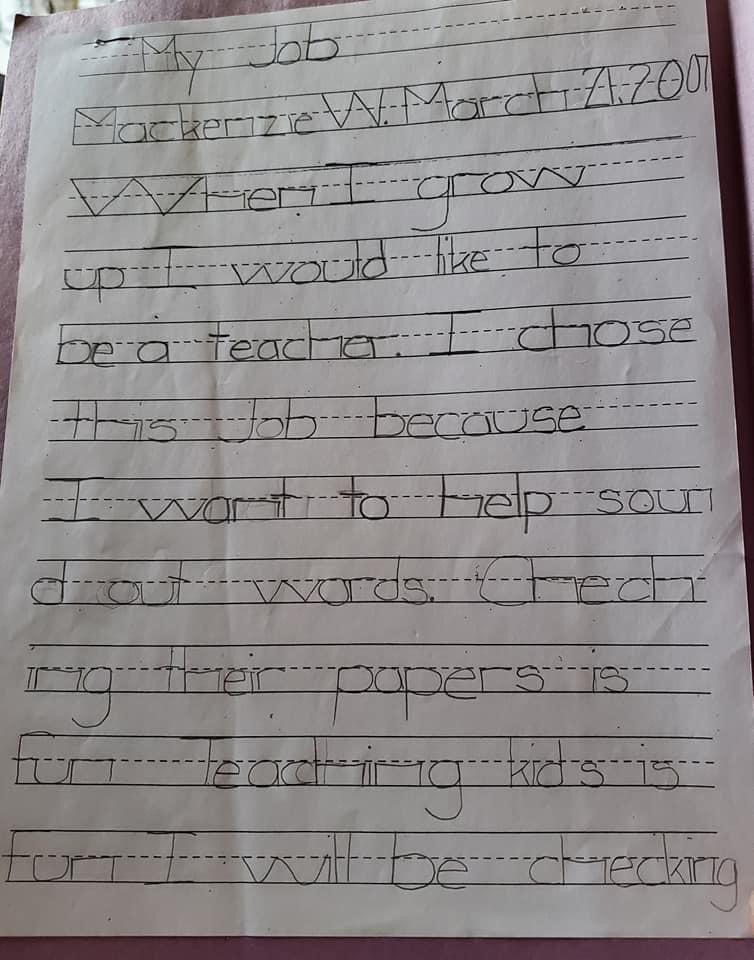 My Job
Mackenzie W. March 21, 2001
When I grow
up I would like to
be a teacher. I chose
this Job because
I want to help soun
d out words. Chech
ing their papers is
fun Teaching kids is
fun I will be checking